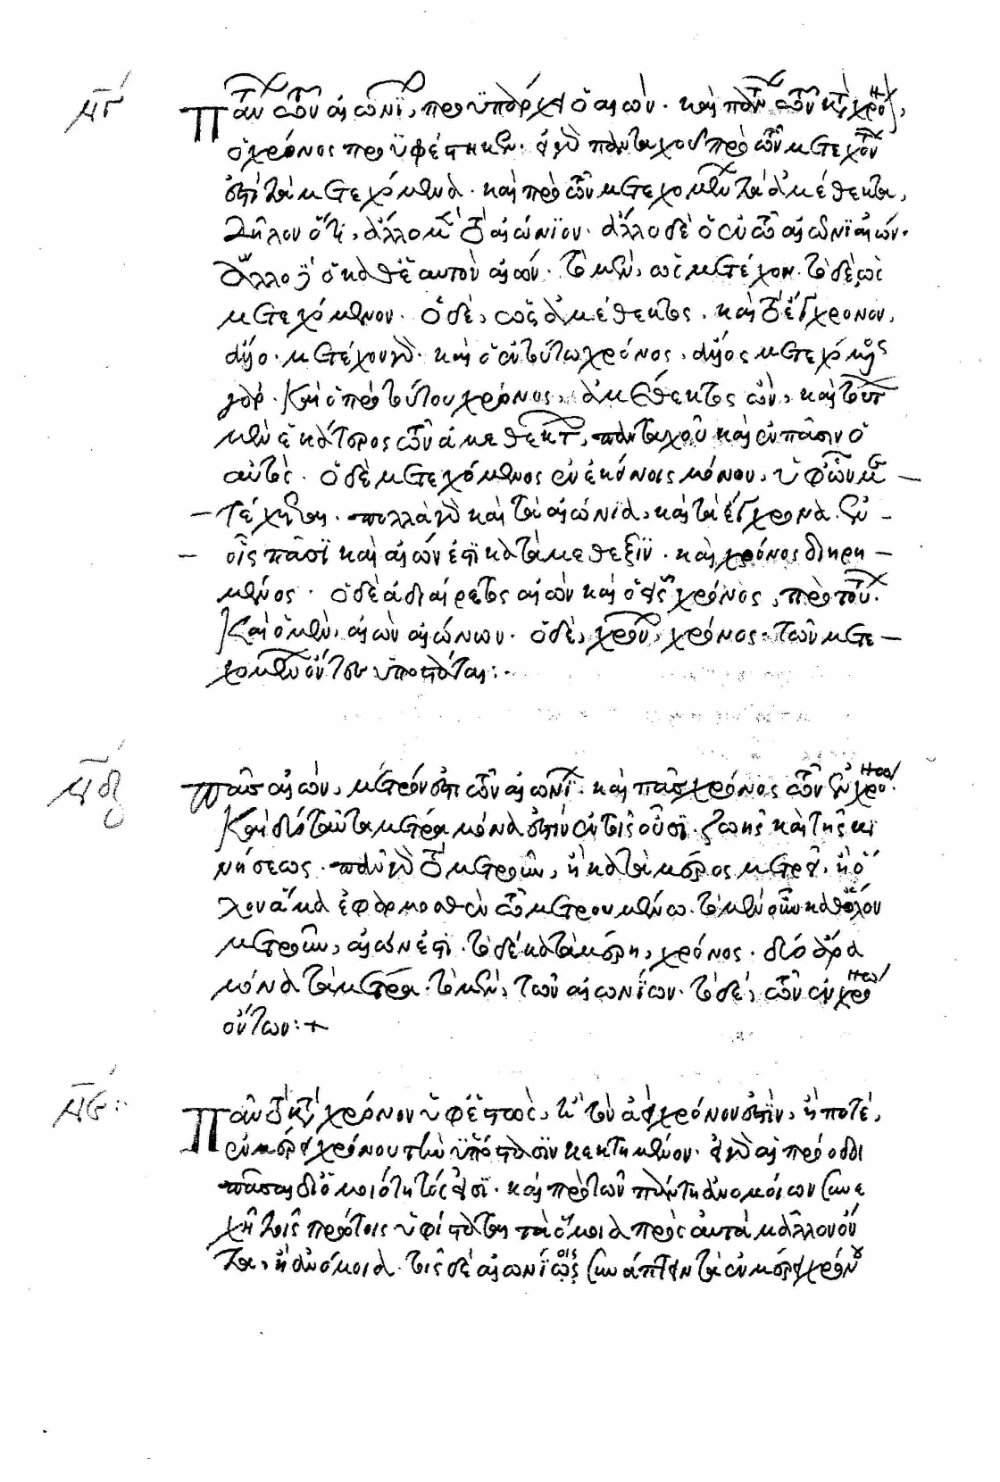 νγ΄
Πάντων τῶν αἰωνίων, προϋπάρχει ὁ αἰών· καὶ πάντων τῶν κατὰ χρόνον,
ὁ χρόνος προϋφέστηκεν· εἰ γὰρ πανταχοῦ πρὸ τῶν μετεχόντων
ἐστὶ τὰ μετεχόμενα· καὶ πρὸ τῶν μετεχομένων τὰ ἀμέθεκτα,
δῆλον ὅτι, ἄλλο μὲν τὸ αἰώνιον· ἄλλο δὲ ὁ ἐν τῷ αἰωνίῳ αἰών·
ἄλλο δὲ ὁ καθ' ἑαυτὸν αἰών· τὸ μὲν, ὡς μετέχον· τὸ δὲ, ὡς
μετεχόμενον· ὁ δὲ, ὡς ἀμέθεκτος· καὶ τὸ ἔγχρονον,
ἄλλο· μετέχον γὰρ· καὶ ὁ ἐν τούτω χρόνος, ἄλλος μετεχόμενος
γάρ· Καὶ ὁ πρὸ τούτου χρόνος, ἀμέθεκτος ὤν, καὶ τούτων
μὲν ἑκάτερος τῶν ἀμεθέκτων, πανταχοῦ καὶ ἐν πᾶσιν ὁ
αὐτός· ὁ δὲ μετεχόμενος ἐν ἐκείνοις μόνον, ὑφ' ὧν με
τέχεται· πολλὰ γὰρ καὶ τὰ αἰώνια, καὶ τὰ ἔγχρονα· ἐν
οἷς πᾶσι καὶ αἰών ἐστι κατὰ μέθεξιν· καὶ χρόνος διηρη
μένος· ὁ δὲ ἀδιαίρετος αἰὼν καὶ ὁ εἷς χρόνος, πρὸ τούτων·
Καὶ ὁ μὲν, αἰὼν αἰώνων· ὁ δὲ, χρόνων, χρόνος· τῶν μετε
χομένων ὄντες ὑποστάται:
νδ΄
Πᾶς αἰών, μέτρόν ἐστι τῶν αἰωνίων· καὶ πᾶς χρόνος τῶν ἐν χρόνω·
Καὶ δύο ταῦτα μέτρα μόνα ἐστὶν ἐν τοῖς οὖσι· ζωῆς καὶ τῆς κι
νήσεως· πᾶν γὰρ τὸ μετροῦν, ἢ κατὰ μέρος μετρεῖ, ἢ ὅ
λον ἅμα ἐφαρμοσθὲν τῷ μετρουμένω· τὸ μὲν οὖν καθ' ὅλον
μετροῦν, αἰών ἐστι· τὸ δὲ κατὰ μέρη, χρόνος· δύο ἄρα
μόνα τὰ μέτρα· τὸ μὲν, τῶν αἰωνίων· τὸ δὲ, τῶν ἐν χρόνω
ὄντων:+
νε΄
Πᾶν τὸ κατὰ χρόνον ὑφεστὼς, ἢ τὸν ἀεὶ χρόνον ἐστὶν, ἢ ποτὲ,
ἐν μέρει χρόνου τὴν ὑπόστασιν κεκτημένον· εἰ γὰρ αἱ πρόοδοι
πᾶσαι δι' ὁμοιότητός εἰσι· καὶ πρὸ τῶν πάντη ἀνομοίων συνε
χῆ τοῖς πρώτοις ὑφίσταται τὰ ὅμοια πρὸς αὐτὰ μᾶλλον ὄν
τα, ἢ ἀνόμοια· τοῖς δὲ αἰωνίοις συνάπτειν τὰ ἐν μέρει χρόνου